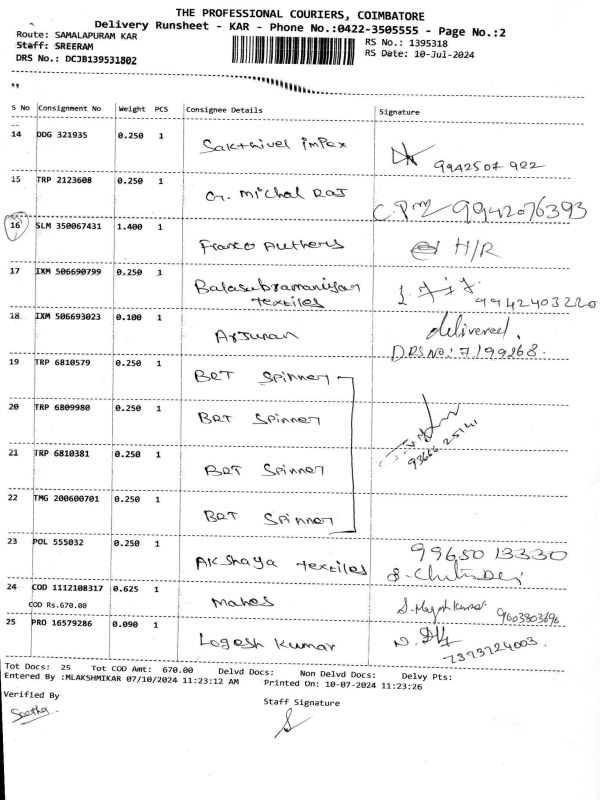 THE PROFESSIONAL COURIERS, COIMBATORE
Delivery Runsheet - KAR - Phone No.:0422-3505555 - Page No.:2
Route: SAMALAPURAM KAR RS No.: 1395318
Staff: SREERAM RS Date: 10-Jul-2024
DRS No.: DCJB139531802
S No Consignment No Weight PCS Consignee Details Signature
14 DDG 321935 0.250 1 Sakthivel impex 9942507 922
15 TRP 2123608 0.250 1 G. Michal Raj 9942076393
16 SLM 350067431 1.400 1 Franco Authers H/R
17 IXM 506690799 0.250 1 Balasubramaniyan textiles 9942403220
18 IXM 506693023 0.100 1 Arjunan delivered.
DRS NO: 7199268.
19 TRP 6810579 0.250 1 BRT Spinner
20 TRP 6809980 0.250 1 BRT Spinner
21 TRP 6810381 0.250 1 BRT Spinner
93666 25141
22 TMG 200600701 0.250 1 BRT Spinner
23 POL 555032 0.250 1 Akshaya textiles 99650 13330
24 COD 1112108317 0.625 1 Mahes 9003803696
COD Rs.670.00
25 PRO 16579286 0.090 1 Logesh kumar 7373724003.
Tot Docs: 25 Tot COD Amt: 670.00 Delvd Docs: Non Delvd Docs: Delvy Pts:
Entered By :MLAKSHMIKAR 07/10/2024 11:23:12 AM Printed On: 10-07-2024 11:23:26
Verified By Staff Signature